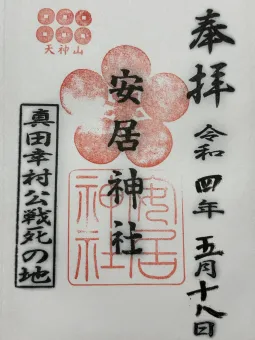 奉拝
令和四年五月十八日
天神山
安居神社
安居
神社
真田幸村公戦死の地